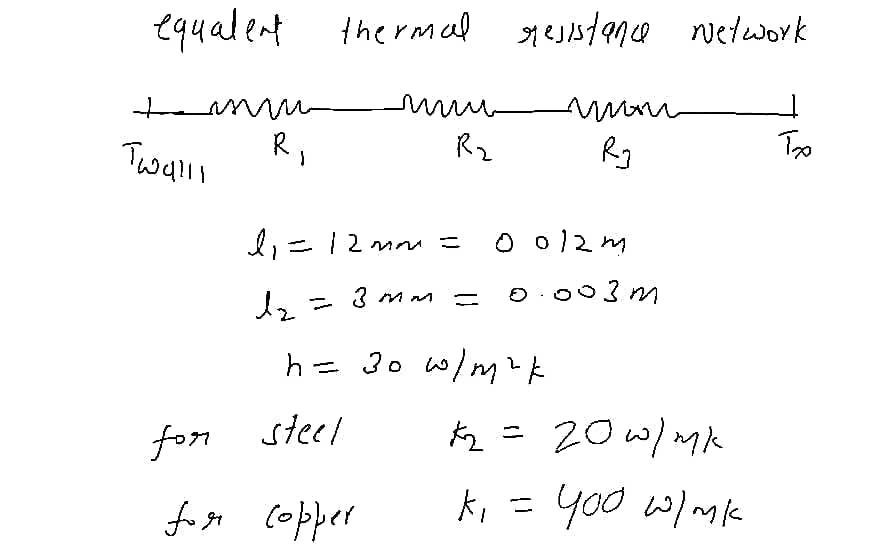 equalent thermal resistance network
Twall1 R1 R2 R3 T∞
l1 = 12 mm = 0 012 m
l2 = 3 mm = 0.003 m
h = 30 w/m2k
for steel k2 = 20 w/mk
for copper k1 = 400 w/mk